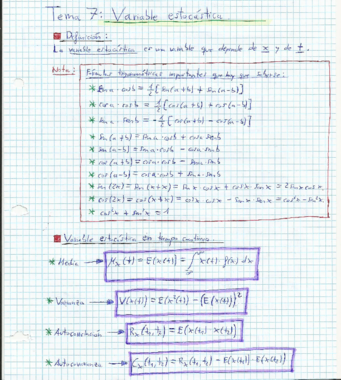 Tema 7: Variable estocástica
Definición:
La variable estocástica es un variable que depende de x y de t.
Nota:
Fórmulas trigonométricas importantes que hay que saberse:
* sin a · cos b = 1/2 [sin(a+b) + sin(a-b)]
* cos a · cos b = 1/2 [cos(a+b) + cos(a-b)]
* sin a · sin b = -1/2 [cos(a+b) - cos(a-b)]
* sin(a+b) = sin a · cos b + cos a · sin b
* sin(a-b) = sin a · cos b - cos a · sin b
* cos(a+b) = cos a · cos b - sin a · sin b
* cos(a-b) = cos a · cos b + sin a · sin b
* sin(2x) = sin(x+x) = sin x cos x + cos x sin x = 2 sin x cos x
* cos(2x) = cos(x+x) = cos x cos x - sin x sin x = cos²x - sin²x
* cos²x + sin²x = 1
Variable estocástica en tiempo continuo
* Media → Mx(t) = E(x(t)) = ∫ x(t) · f(x) dx
* Varianza → V(x(t)) = E(x²(t)) - (E(x(t)))²
* Autocorrelación → Rx(t₁,t₂) = E(x(t₁) · x(t₂))
* Autocovarianza → Cx(t₁,t₂) = Rx(t₁,t₂) - E(x(t₁)) · E(x(t₂))